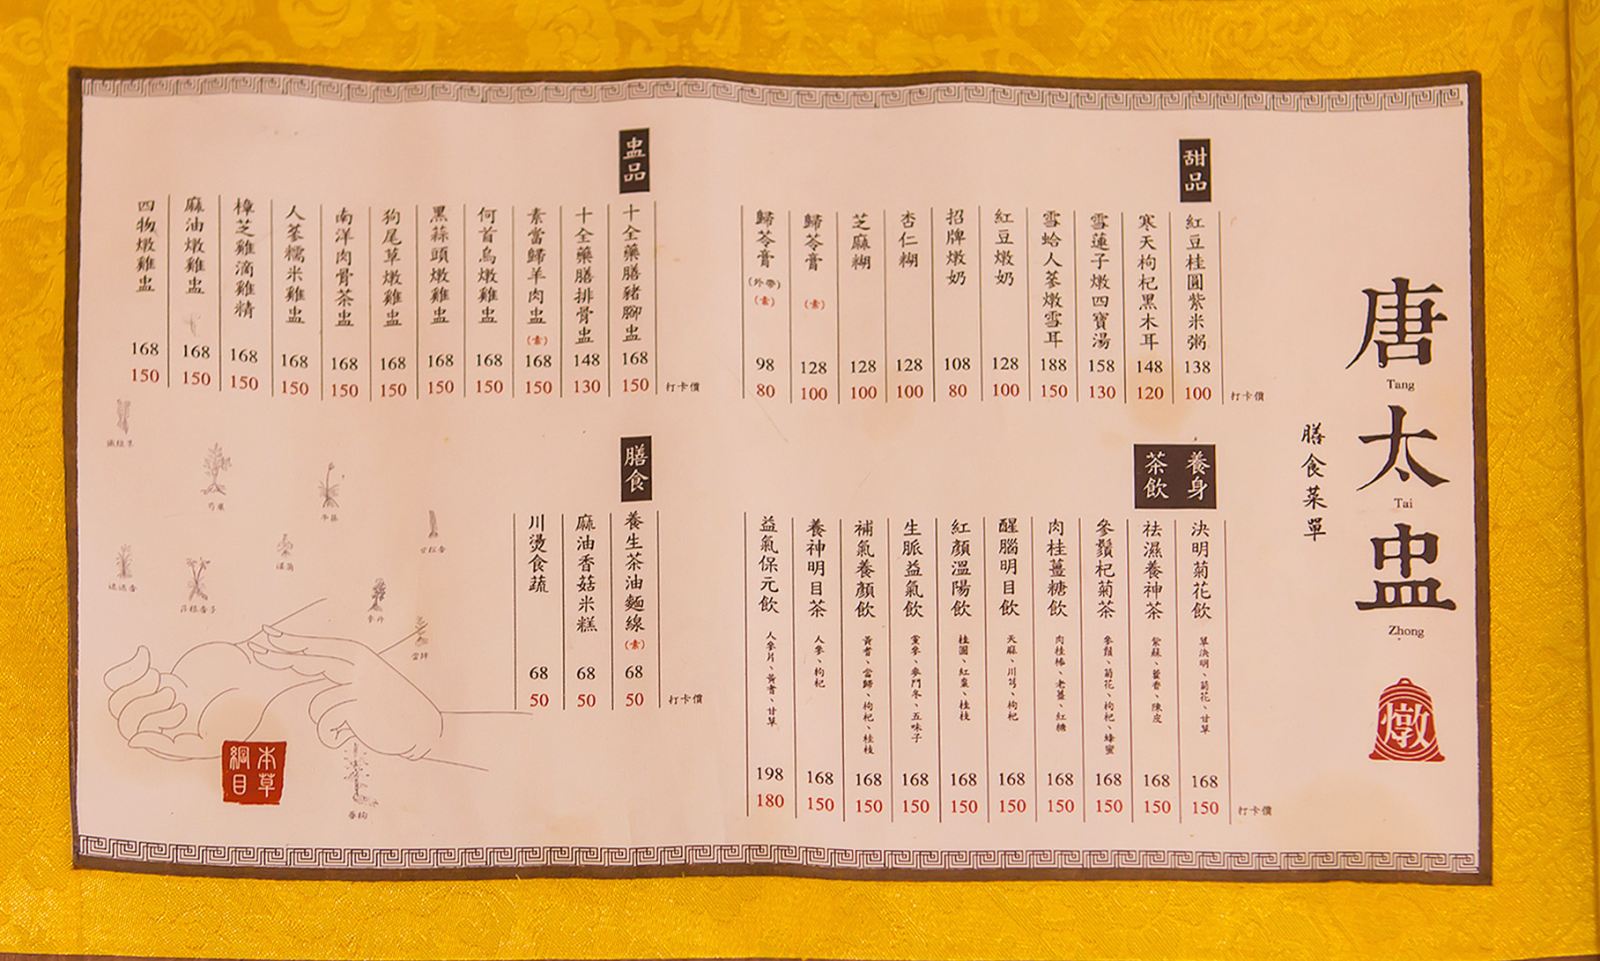 唐太盅
Tang
Tai
Zhong
燉
膳食菜單
甜品
紅豆桂圓紫米粥 138 100
寒天枸杞黑木耳 148 120
雪蓮子燉四寶湯 158 130
雪蛤人蔘燉雪耳 188 150
紅豆燉奶 128 100
招牌燉奶 108 80
杏仁糊 128 100
芝麻糊 128 100
歸苓膏(素) 128 100
歸苓膏(外帶)(素) 98 80
打卡價
養身茶飲
決明菊花飲 草決明、菊花、甘草 168 150
祛濕養神茶 紫蘇、藿香、陳皮 168 150
參鬚杞菊茶 參鬚、菊花、枸杞、蜂蜜 168 150
肉桂薑糖飲 肉桂棒、老薑、紅糖 168 150
醒腦明目飲 天麻、川芎、枸杞 168 150
紅顏溫陽飲 桂圓、紅棗、桂枝 168 150
生脈益氣飲 黨參、麥門冬、五味子 168 150
補氣養顏飲 黃耆、當歸、枸杞、桂枝 168 150
養神明目茶 人參、枸杞 168 150
益氣保元飲 人參片、黃耆、甘草 198 180
打卡價
盅品
十全藥膳豬腳盅 168 150
十全藥膳排骨盅 148 130
素當歸羊肉盅(素) 168 150
何首烏燉雞盅 168 150
黑蒜頭燉雞盅 168 150
狗尾草燉雞盅 168 150
南洋肉骨茶盅 168 150
人蔘糯米雞盅 168 150
樟芝雞滴雞精 168 150
麻油燉雞盅 168 150
四物燉雞盅 168 150
打卡價
膳食
養生茶油麵線(素) 68 50
麻油香菇米糕 68 50
川燙食蔬 68 50
打卡價
本草綱目